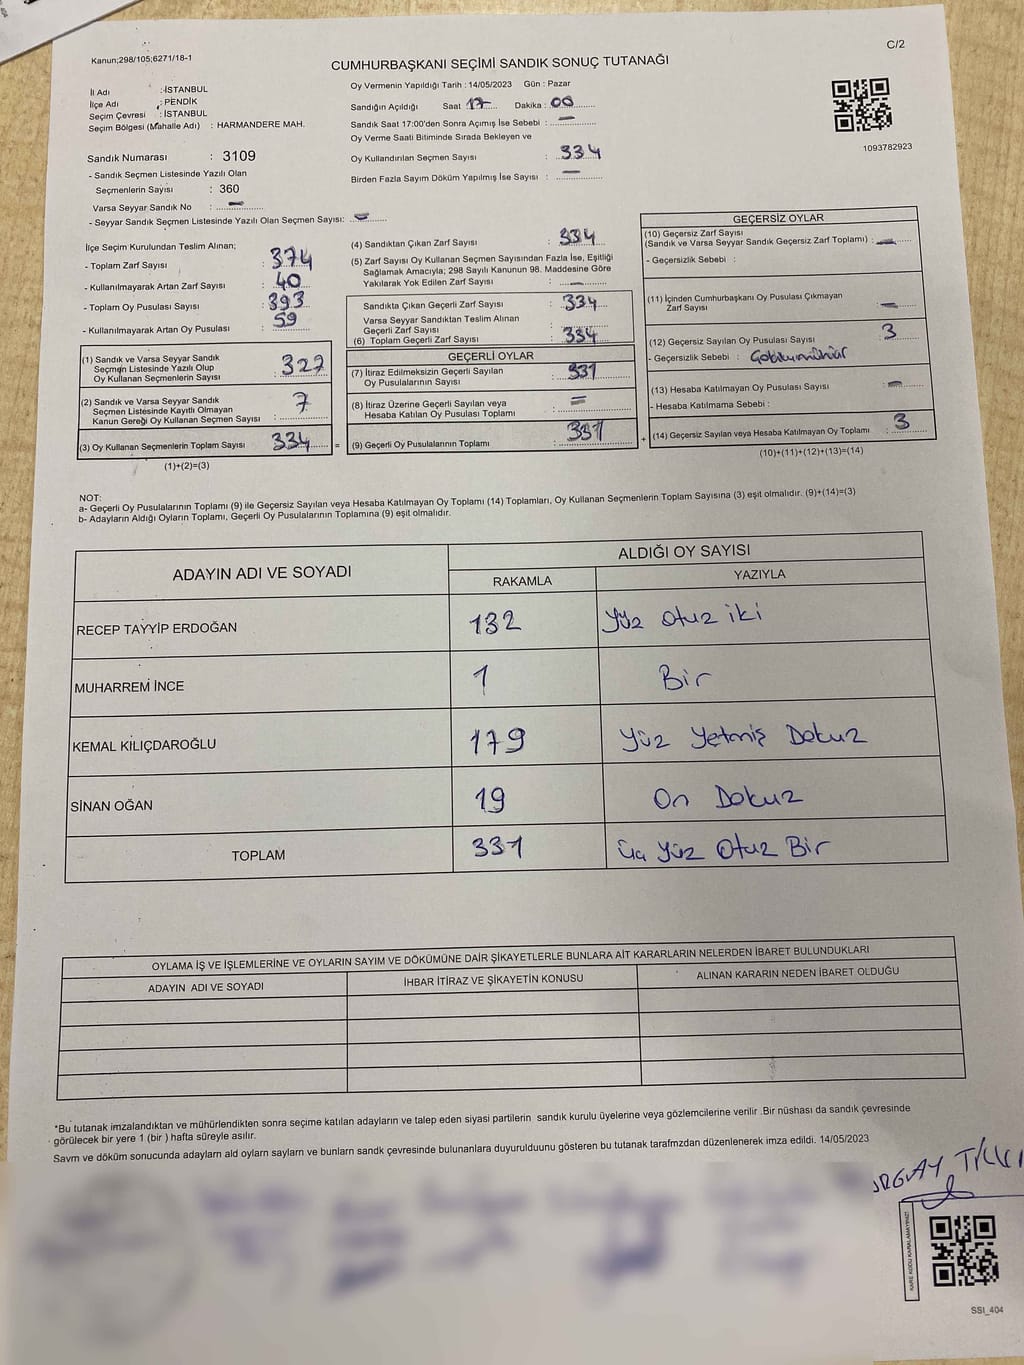 C/2
Kanun;298/105;6271/18-1
CUMHURBAŞKANI SEÇİMİ SANDIK SONUÇ TUTANAĞI
İl Adı : İSTANBUL
İlçe Adı : PENDİK
Seçim Çevresi : İSTANBUL
Seçim Bölgesi (Mahalle Adı) : HARMANDERE MAH.
Sandık Numarası : 3109
- Sandık Seçmen Listesinde Yazılı Olan
Seçmenlerin Sayısı : 360
Varsa Seyyar Sandık No : -
- Seyyar Sandık Seçmen Listesinde Yazılı Olan Seçmen Sayısı: -
Oy Vermenin Yapıldığı Tarih : 14/05/2023 Gün : Pazar
Sandığın Açıldığı Saat 17 Dakika : 00
Sandık Saat 17:00'den Sonra Açımış İse Sebebi : -
Oy Verme Saati Bitiminde Sırada Bekleyen ve
Oy Kullandırılan Seçmen Sayısı : 334
Birden Fazla Sayım Döküm Yapılmış İse Sayısı : -
1093782923
İlçe Seçim Kurulundan Teslim Alınan;
- Toplam Zarf Sayısı : 374
- Kullanılmayarak Artan Zarf Sayısı : 40
- Toplam Oy Pusulası Sayısı : 393
- Kullanılmayarak Artan Oy Pusulası : 59
(1) Sandık ve Varsa Seyyar Sandık
Seçmen Listesinde Yazılı Olup
Oy Kullanan Seçmenlerin Sayısı : 327
(2) Sandık ve Varsa Seyyar Sandık
Seçmen Listesinde Kayıtlı Olmayan
Kanun Gereği Oy Kullanan Seçmen Sayısı : 7
(3) Oy Kullanan Seçmenlerin Toplam Sayısı : 334 =
(1)+(2)=(3)
(4) Sandıktan Çıkan Zarf Sayısı : 334
(5) Zarf Sayısı Oy Kullanan Seçmen Sayısından Fazla İse, Eşitliği
Sağlamak Amacıyla; 298 Sayılı Kanunun 98. Maddesine Göre
Yakılarak Yok Edilen Zarf Sayısı : -
Sandıkta Çıkan Geçerli Zarf Sayısı : 334
Varsa Seyyar Sandıktan Teslim Alınan
Geçerli Zarf Sayısı :
(6) Toplam Geçerli Zarf Sayısı : 334
GEÇERLİ OYLAR
(7) İtiraz Edilmeksizin Geçerli Sayılan
Oy Pusulalarının Sayısı : 331
(8) İtiraz Üzerine Geçerli Sayılan veya
Hesaba Katılan Oy Pusulası Toplamı : =
(9) Geçerli Oy Pusulalarının Toplamı : 331 +
GEÇERSİZ OYLAR
(10) Geçersiz Zarf Sayısı
(Sandık ve Varsa Seyyar Sandık Geçersiz Zarf Toplamı) : -
- Geçersizlik Sebebi :
(11) İçinden Cumhurbaşkanı Oy Pusulası Çıkmayan
Zarf Sayısı : -
(12) Geçersiz Sayılan Oy Pusulası Sayısı : 3
- Geçersizlik Sebebi :
(13) Hesaba Katılmayan Oy Pusulası Sayısı : -
- Hesaba Katılmama Sebebi :
(14) Geçersiz Sayılan veya Hesaba Katılmayan Oy Toplamı : 3
(10)+(11)+(12)+(13)=(14)
NOT:
a- Geçerli Oy Pusulalarının Toplamı (9) ile Geçersiz Sayılan veya Hesaba Katılmayan Oy Toplamı (14) Toplamları, Oy Kullanan Seçmenlerin Toplam Sayısına (3) eşit olmalıdır. (9)+(14)=(3)
b- Adayların Aldığı Oyların Toplamı, Geçerli Oy Pusulalarının Toplamına (9) eşit olmalıdır.
ADAYIN ADI VE SOYADI
ALDIĞI OY SAYISI
RAKAMLA YAZIYLA
RECEP TAYYİP ERDOĞAN 132 Yüz otuz iki
MUHARREM İNCE 1 Bir
KEMAL KILIÇDAROĞLU 179 Yüz Yetmiş Dokuz
SİNAN OĞAN 19 On Dokuz
TOPLAM 331 Üç Yüz Otuz Bir
OYLAMA İŞ VE İŞLEMLERİNE VE OYLARIN SAYIM VE DÖKÜMÜNE DAİR ŞİKAYETLERLE BUNLARA AİT KARARLARIN NELERDEN İBARET BULUNDUKLARI
ADAYIN ADI VE SOYADI İHBAR İTİRAZ VE ŞİKAYETİN KONUSU ALINAN KARARIN NEDEN İBARET OLDUĞU
*Bu tutanak imzalandıktan ve mühürlendikten sonra seçime katılan adayların ve talep eden siyasi partilerin sandık kurulu üyelerine veya gözlemcilerine verilir .Bir nüshası da sandık çevresinde
görülecek bir yere 1 (bir ) hafta süreyle asılır.
Sayım ve döküm sonucunda adayların ald oyların sayları ve bunların sandk çevresinde bulunanlara duyurulduunu gösteren bu tutanak tarafmzdan düzenlenerek imza edildi. 14/05/2023
KARE KODU KARALAMAYINIZ!
SSI_404